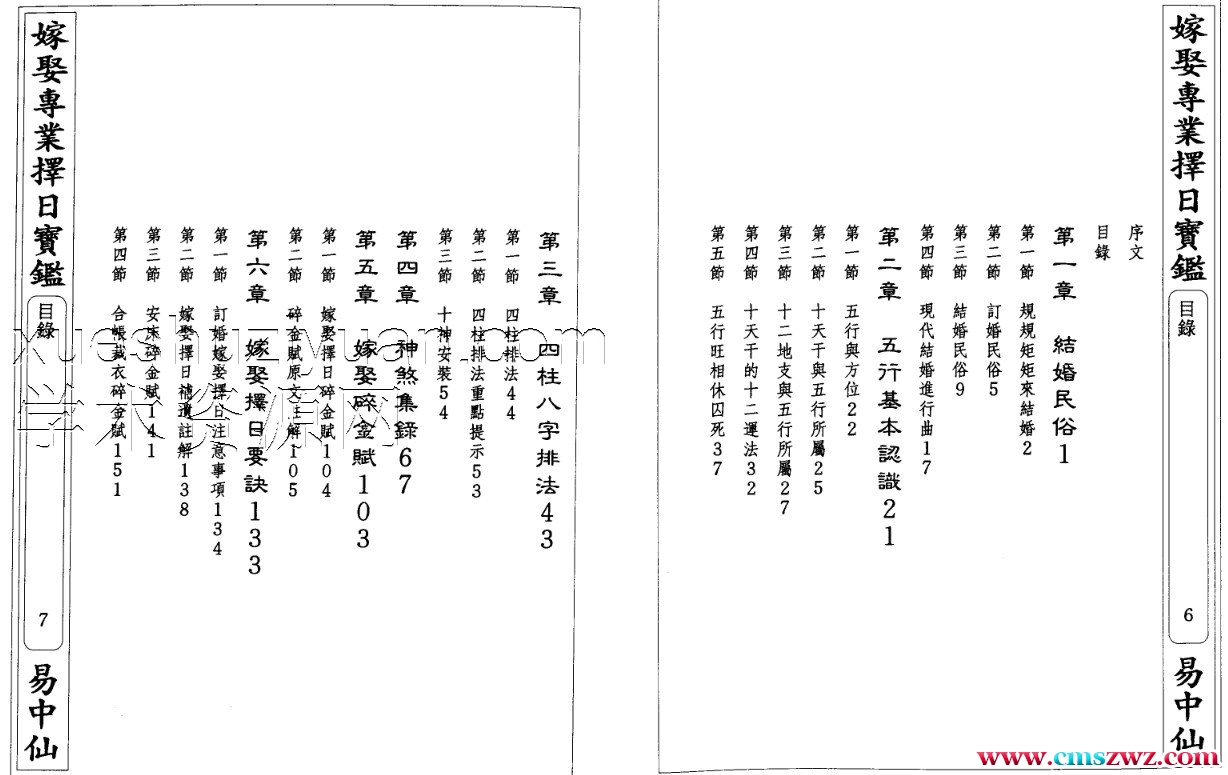 嫁娶專業擇日寶鑑
目錄
6
易中仙
序文
目錄
第一章 結婚民俗1
第一節 規規矩矩來結婚2
第二節 訂婚民俗5
第三節 結婚民俗9
第四節 現代結婚進行曲17
第二章 五行基本認識21
第一節 五行與方位22
第二節 十天干與五行所屬25
第三節 十二地支與五行所屬27
第四節 十天干的十二運法32
第五節 五行旺相休囚死37
第三章 四柱八字排法43
第一節 四柱排法44
第二節 四柱排法重點提示53
第三節 十神安裝54
第四章 神煞集錄67
第五章 嫁娶碎金賦103
第一節 嫁娶擇日碎金賦104
第二節 碎金賦原文註解105
第六章 嫁娶擇日要訣133
第一節 訂婚嫁娶擇日注意事項134
第二節 嫁娶擇日補遺註解138
第三節 安床碎金賦141
第四節 合帳裁衣碎金賦151
嫁娶專業擇日寶鑑
目錄
7
易中仙
xueshuziyuan.com
学术资源网
www.cmszwz.com